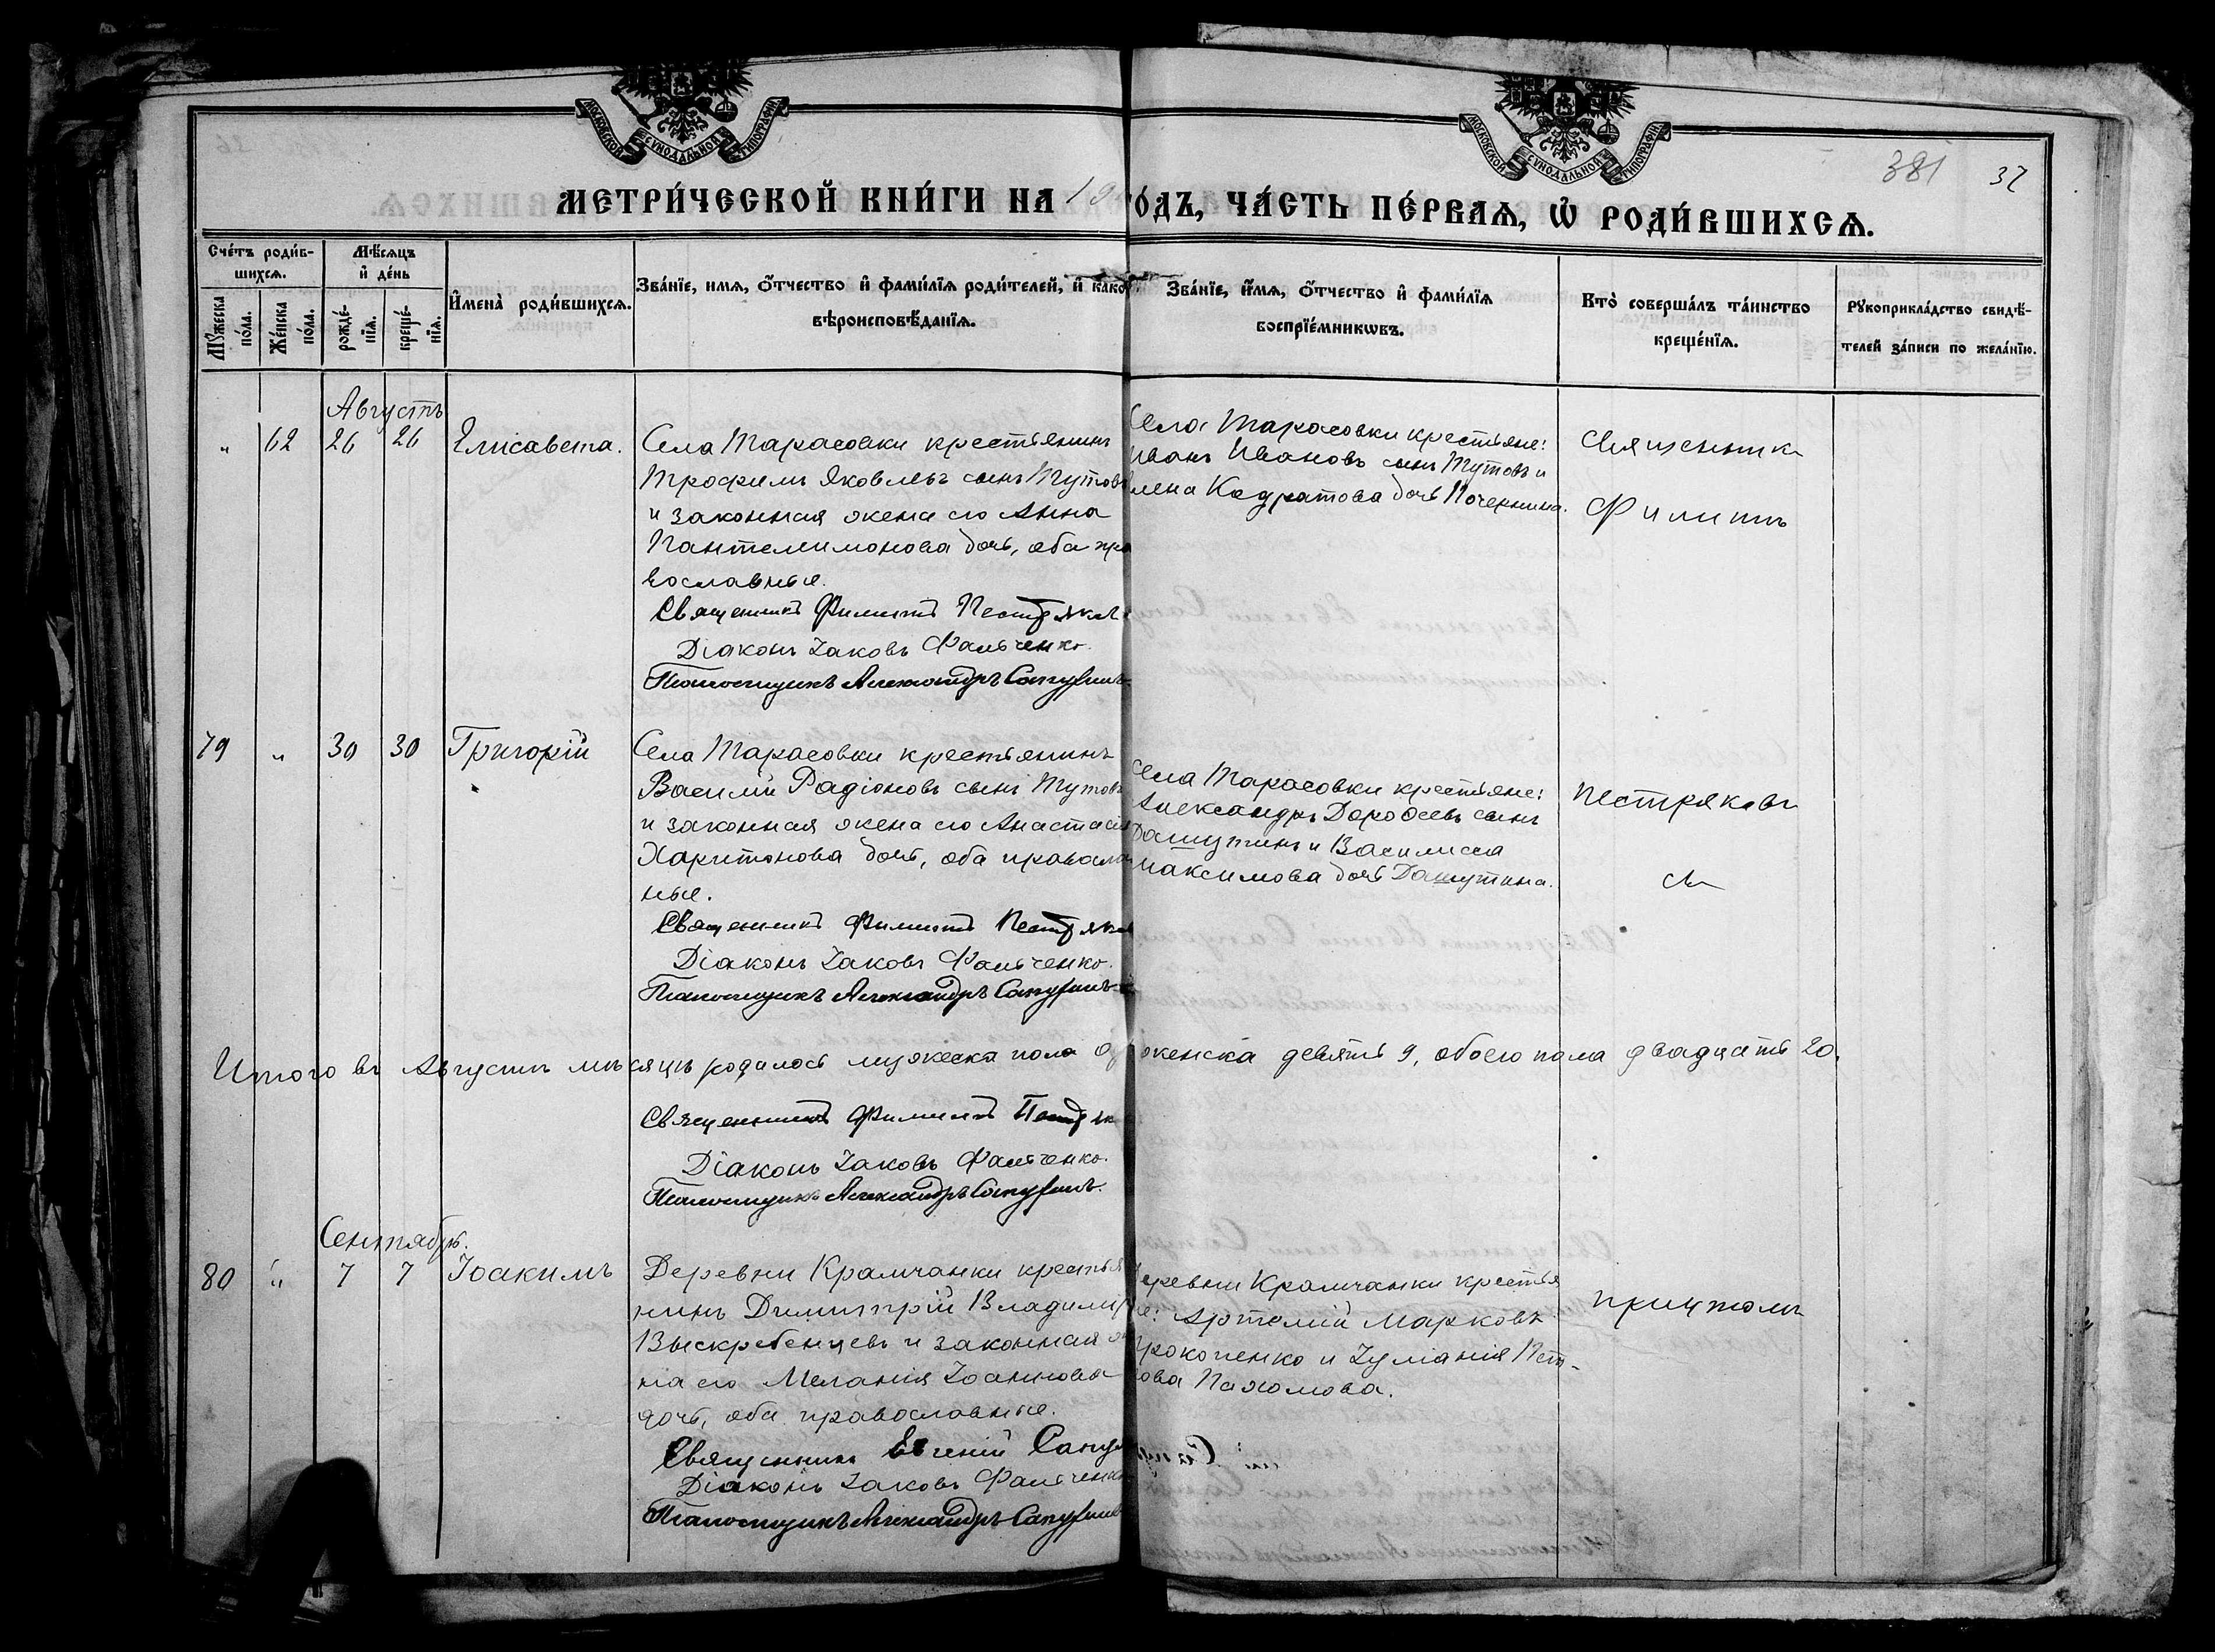 МОСКОВСКОЙ СѴНОДАЛЬНОЙ ТИПОГРАФІИ
МОСКОВСКОЙ СѴНОДАЛЬНОЙ ТИПОГРАФІИ
381 37
МЕТРИ́ЧЕСКОЙ КНИ́ГИ НА 19
О́ДЪ, ЧА́СТЬ ПЕ́РВАѦ, Ѡ҆ РОДИ́ВШИХСѦ.
Сче́тъ роди́в-
шихсѧ.
Мѣ́сѧцъ
и҆ де́нь
Мꙋ́жеска по́ла.
Же́нска по́ла.
рожде́-
нїѧ.
креще́-
нїѧ.
И҆мена̀ роди́вшихсѧ.
Зва́нїе, имѧ, ѻ҆́тчество и҆ фами́лїѧ роди́телей, и҆ како
вѣроисповѣ́данїѧ.
Зва́нїе, и҆́мѧ, ѻ҆́тчество и҆ фами́лїѧ
воспрїе́мникѡвъ.
Кто̀ соверша́лъ та́инство
креще́нїѧ.
Рꙋкоприкла́дство свидѣ́-
телей за́писи по жела́нїю.
Августъ
" 62 26 26 Елисавета.
Села Тарасовки крестьянинъ
Трофимъ Яковлевъ сынъ Тутовъ
и законная жена его Анна
Пантелеимонова дочь, оба пра
вославные.
Священникъ Филиппъ Пестряковъ
Діаконъ Іаковъ Фальченко.
Псаломщикъ Александръ
Села Тарасовки крестьяне:
Иванъ Ивановъ сынъ Тутовъ и
лена Кодратова дочь
Священникъ
Филиппъ
79 " 30 30 Григорій
Села Тарасовки крестьянинъ
Василій Радіоновъ сынъ Тутовъ
и законная жена его Анастасія
Харитонова дочь, оба православ
ные.
Священникъ Филиппъ Пестряков
Діаконъ Іаковъ Фальченко.
Псаломщикъ Александръ
Села Тарасовки крестьяне:
Александръ Дорофеевъ сынъ
Дашутинъ и Василисса
Максимова дочь Дашутина.
Пестряковъ
съ
Итого въ Августѣ мѣсяцѣ родилось мужеска пола од женска девять 9, обоего пола двадцать 20.
Священникъ Филиппъ Пестряк
Діаконъ Іаковъ Фальченко.
Псаломщикъ Александръ
Сентябрь.
80 " 7 7 Іоакимъ
Деревни Крамчанки крестья
нинъ Димитрій Владимір
Выскребенцевъ и законная же
на его Меланія Іоаннова
дочь, оба православные.
Священникъ Евгеній
Діаконъ Іаковъ Фальченко
Псаломщикъ Александръ
еревни Крамчанки крестья
не: Артемій Марковъ
Прокопенко и Іуліанія Пет-
рова Пахомова.
причтомъ